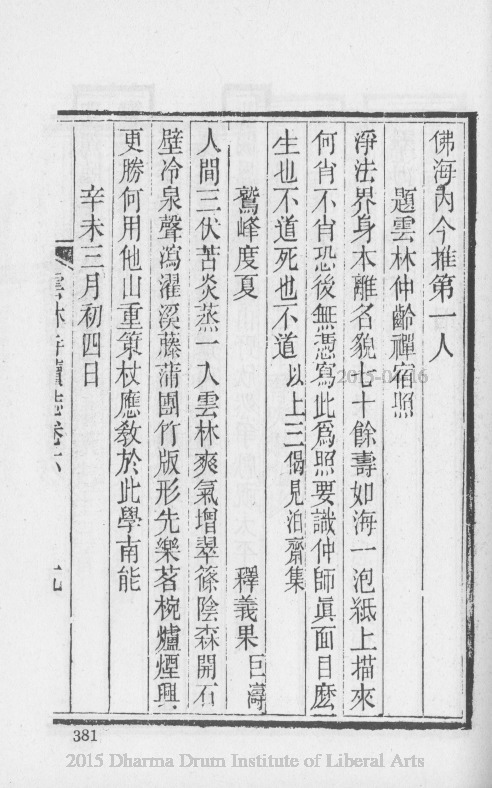 佛海內今推第一人
題雲林仲齡禪宿照
淨法界身本離名貌七十餘壽如海一泡紙上描來
何肖不肖恐後無憑寫此爲照要識仲師眞面目麼
生也不道死也不道 以上三偈見泊齋集
鷲峰度夏 釋義果 巨濤
人間三伏苦炎蒸一入雲林爽氣增翠篠陰森開石
壁冷泉聲瀉濯溪藤蒲團竹版形先樂茗椀爐煙興
更勝何用他山重策杖應教於此學南能
辛未三月初四日
雲林寺續志卷六
381
2015 Dharma Drum Institute of Liberal Arts